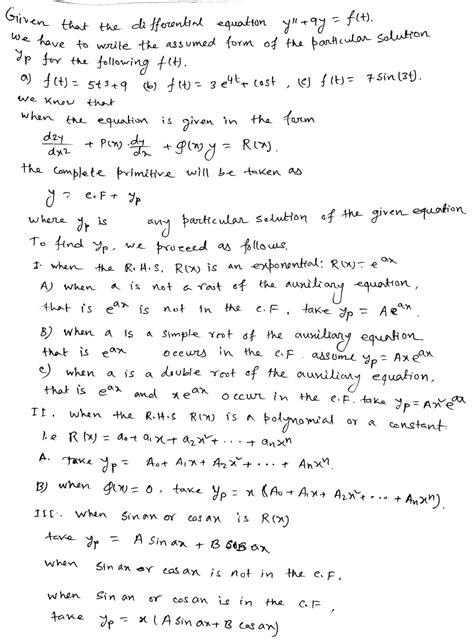 Given that the differential equation y'' + 9y = f(t).
we have to write the assumed form of the particular solution
yp for the following f(t).
a) f(t) = 5t³+9 (b) f(t) = 3e^4t + cost, (c) f(t) = 7sin(3t).
we know that
when the equation is given in the form
d²y/dx² + P(x).dy/dx + Q(x)y = R(x).
the complete primitive will be taken as
y = C.F + yp
where yp is any particular solution of the given equation
To find yp, we proceed as follows.
I. when the R.H.S. R(x) is an exponential: R(x) = e^ax
A) when a is not a root of the auxiliary equation,
that is e^ax is not in the C.F, take yp = Ae^ax.
B) when a is a simple root of the auxiliary equation
that is e^ax occurs in the C.F. assume yp = Axe^ax
c) when a is a double root of the auxiliary equation,
that is e^ax and xe^ax occur in the C.F. take yp = Ax²e^ax
II. when the R.H.S R(x) is a polynomial or a constant
i.e R(x) = a0 + a1x + a2x² + ... + anx^n
A. Take yp = A0 + A1x + A2x² + ... + Anx^n.
B) when Q(x) = 0, take yp = x (A0 + A1x + A2x² + ... + Anx^n).
III. when sinax or cosax is R(x)
take yp = A sinax + B cosax
when sinax or cosax is not in the C.F,
when sinax or cosax is in the C.F,
take yp = x(A sinax + B cosax)